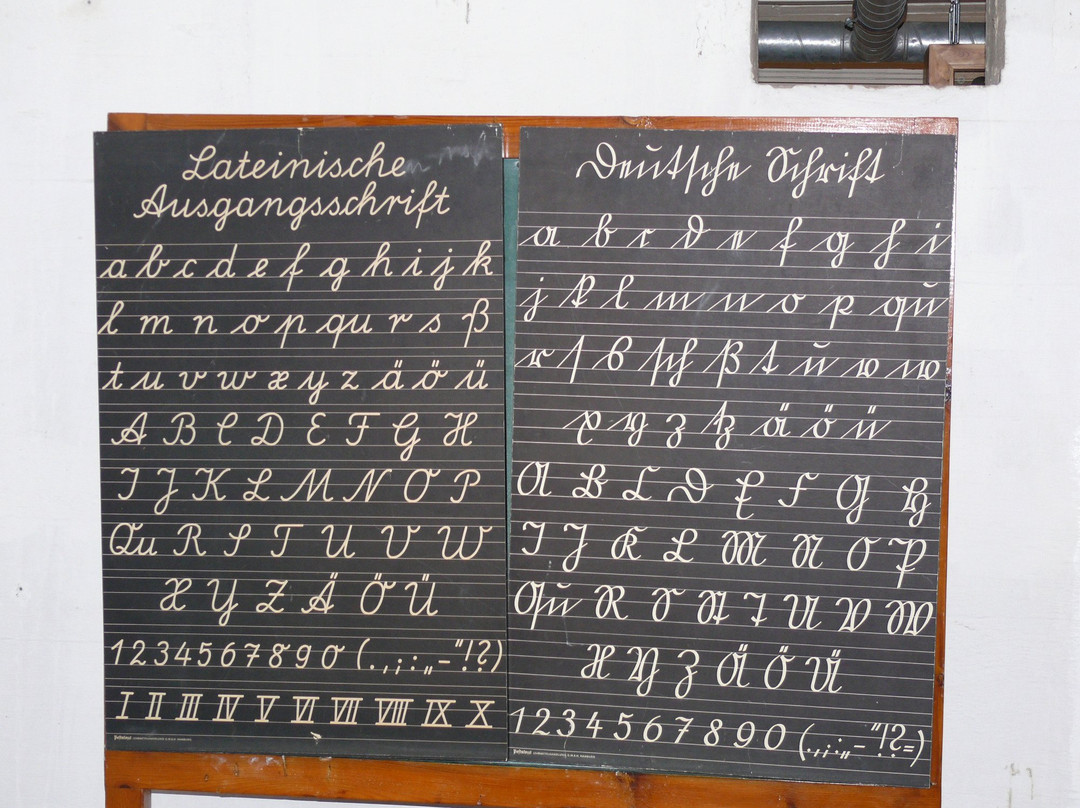 Lateinische
Ausgangsschrift
a b c d e f g h i j k
l m n o p qu r s ß
t u v w x y z ä ö ü
A B C D E F G H
I J K L M N O P
Qu R S T U V W
X Y Z Ä Ö Ü
1 2 3 4 5 6 7 8 9 0 (.,;:„-“!?)
I II III IV V VI VII VIII IX X
Deutsche Schrift
a b c d e f g h i
j k l m n o p qu
r ſ s ſch ß t u v w
x y z tz ä ö ü
A B C D E F G H
I J K L M N O P
Qu R S St T U V W
X Y Z Ä Ö Ü
1 2 3 4 5 6 7 8 9 0 (.,;:„-“!?=)